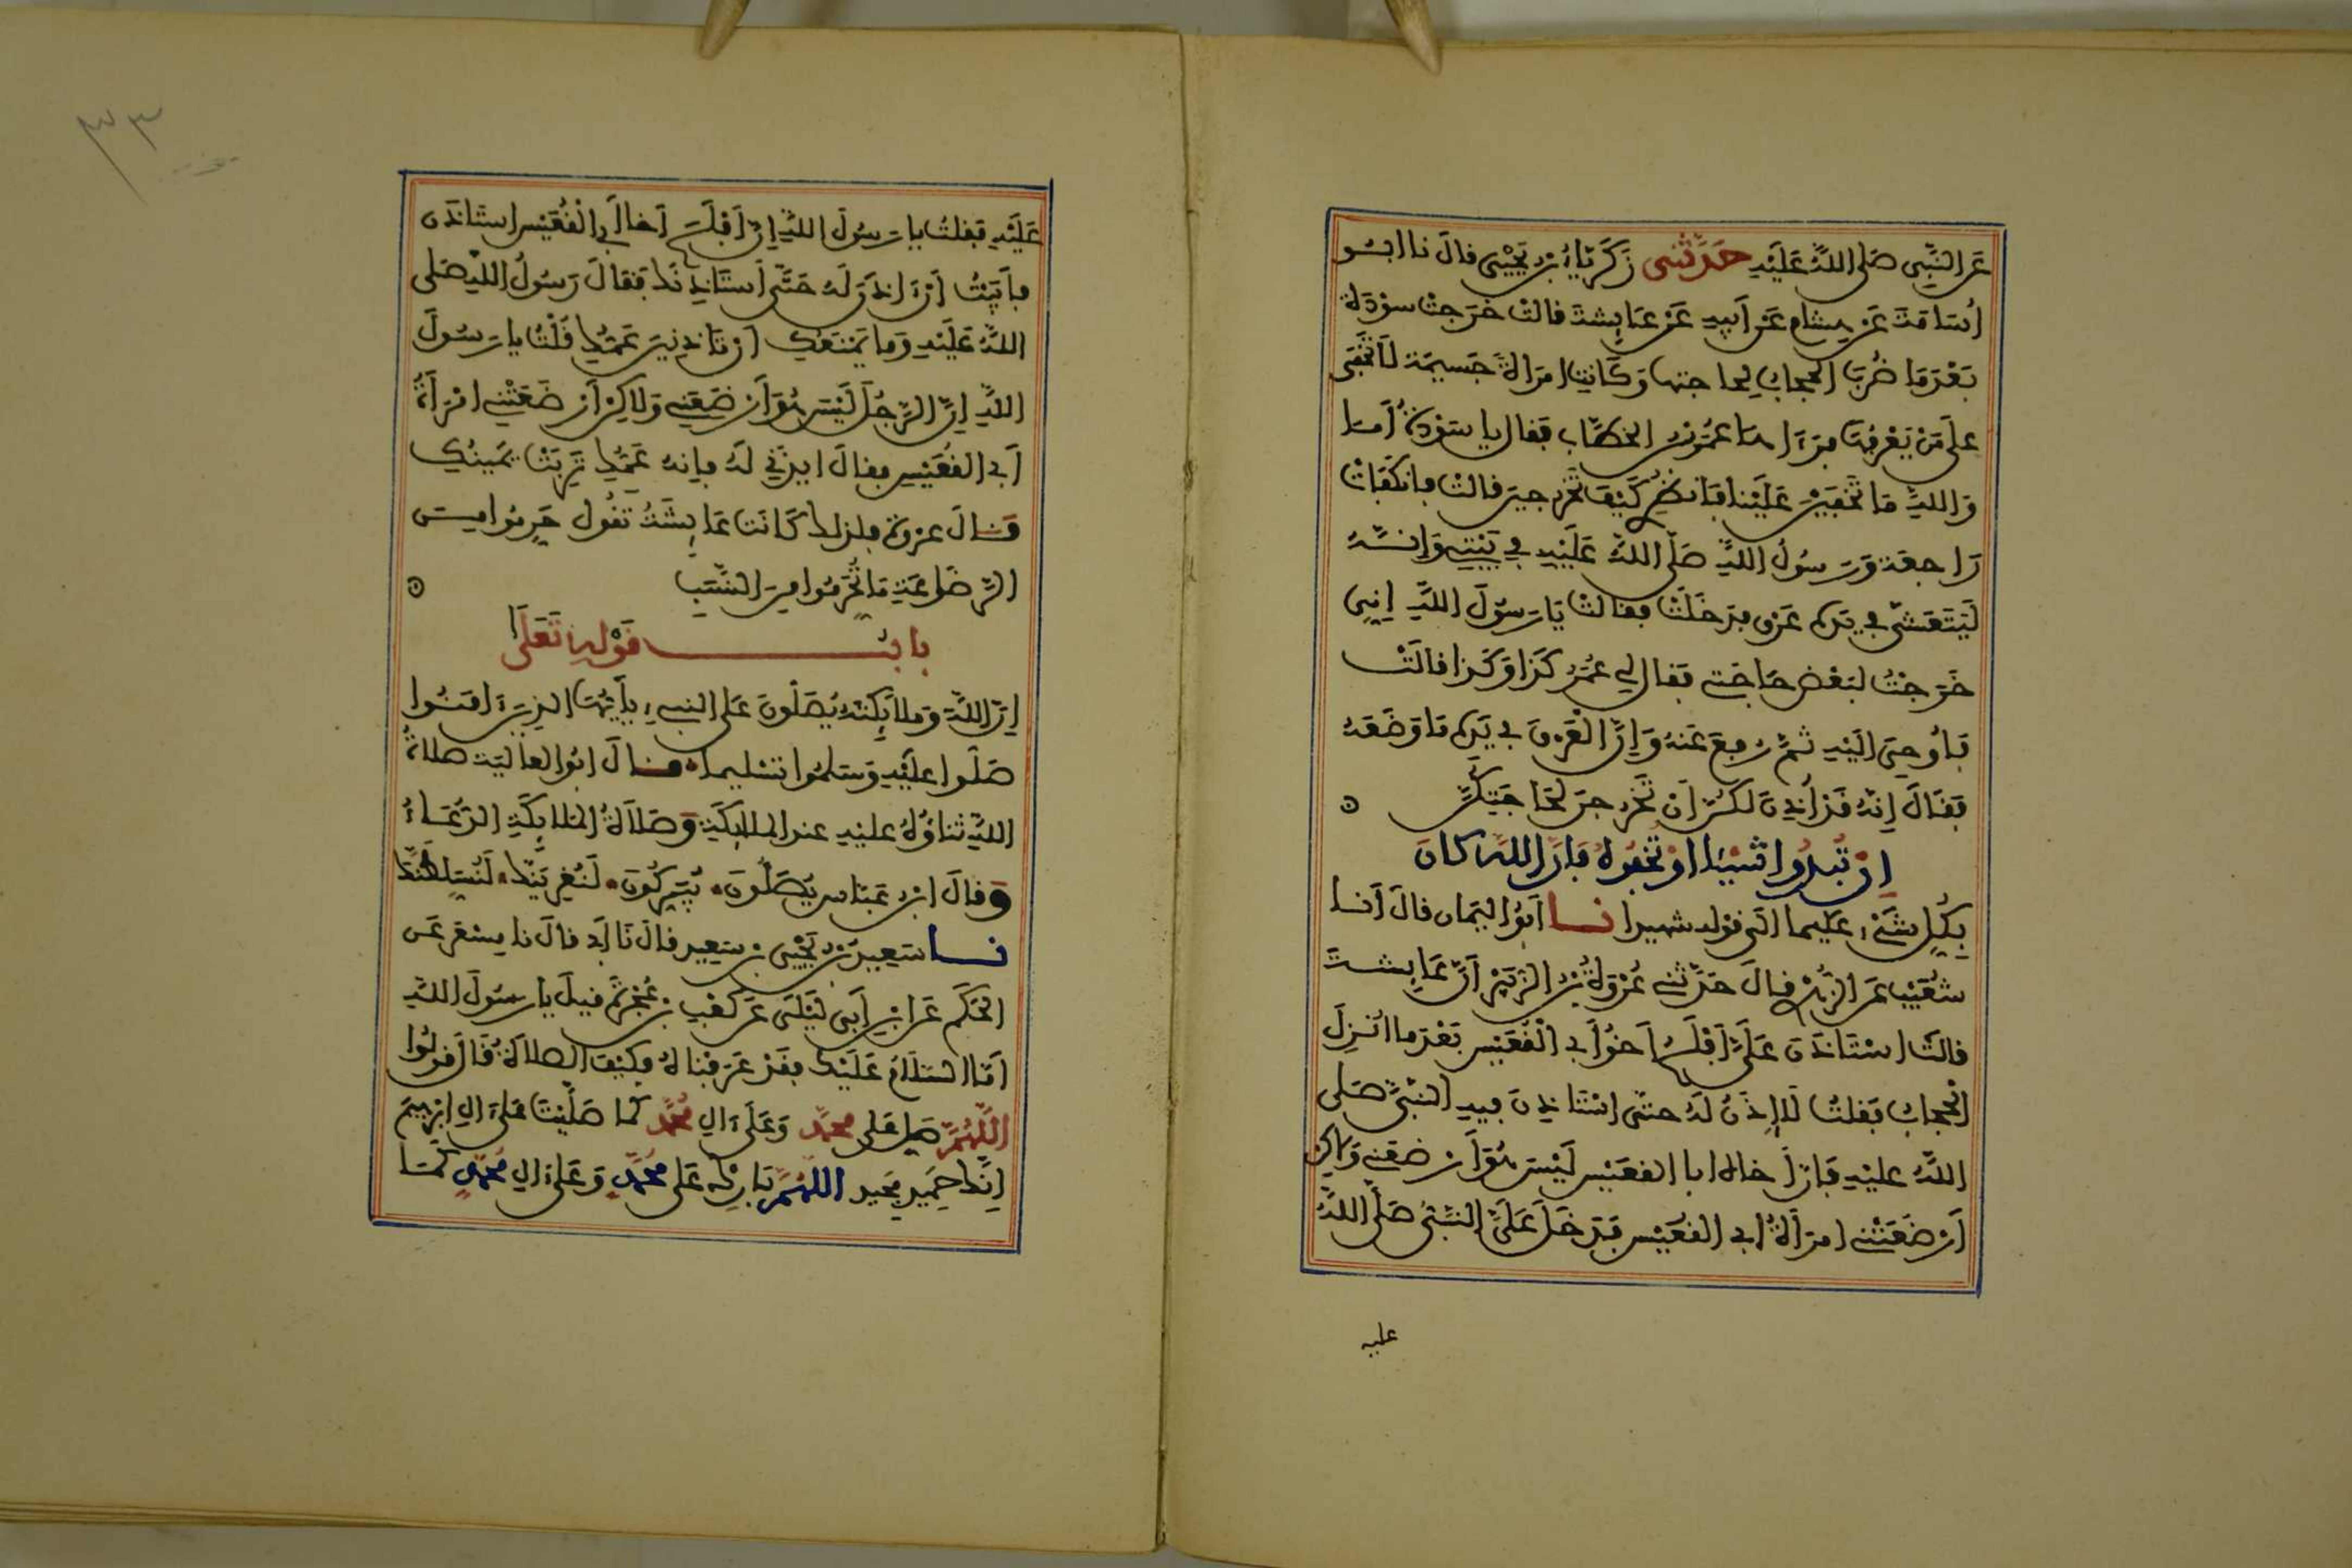 عن النبي صلى الله عليه حدثني زكرياء بن يحيى قال نا ابو
اسامة عن هشام عن ابيه عن عايشة قالت خرجت سودة
بعدما ضرب الحجاب لحاجتها وكانت امرأة جسيمة لا تخفى
على من يعرفها فرءاها عمر بن الخطاب فقال يا سودة أما
والله ما تخفين علينا فانظري كيف تخرجين قالت فانكفأت
راجعة ورسول الله صلى الله عليه في بيتي وإنه
ليتعشى في يده عرق فدخلت فقالت يا رسول الله إني
خرجت لبعض حاجتي فقال لي عمر كذا وكذا قالت
فأوحي اليه ثم رفع عنه وإن العرق في يده ما وضعه
فقال إنه قد أذن لكن أن تخرجن لحاجتكن
إن تبدوا شيئا او تخفوه فإن الله كان
بكل شيء عليما الى قوله شهيدا نا ابو اليمان قال أنا
شعيب عن الزهري قال حدثني عروة بن الزبير أن عايشة
قالت استأذن علي أفلح أخو أبي القعيس بعدما انزل
الحجاب فقلت لا إذن له حتى استاذن فيه النبي صلى
الله عليه فإن أخاه ابا القعيس ليس هو أرضعني ولاكن
أرضعتني امرأة ابي القعيس فدخل علي النبي صلى الله
عليه
٣٣
عليه فقلت يا رسول الله إن أفلح أخا أبي القعيس استأذن
فأبيت أن ءاذن له حتى أستاذنك فقال رسول الله صلى
الله عليه وما يمنعك أن تاذنين عمك قلت يا رسول
الله إن الرجل ليس هو أرضعني ولاكن أرضعتني امرأة
أبي القعيس فقال ايذني له فإنه عمك تربت يمينك
قال عروة فلذلك كانت عايشة تقول حرموا من
الرضاعة ما تحرموا من النسب
باب قوله تعلى
إن الله وملايكته يصلون على النبيء يأيها الذين ءامنوا
صلوا عليه وسلموا تسليما قال ابو العالية صلاة
الله ثناؤه عليه عند الملايكة وصلاة الملايكة الدعاء
وقال ابن عباس يصلون يبركون لنغرينك لنسلطنك
نا سعيد بن يحيى بن سعيد قال نا أبي قال نا مسعر عن
الحكم عن ابن أبي ليلى عن كعب بن عجرة قيل يا رسول الله
أما السلام عليك فقد عرفناه فكيف الصلاة قال قولوا
اللهم صل على محمد وعلى ءال محمد كما صليت على ءال إبرهيم
إنك حميد مجيد اللهم بارك على محمد وعلى ءال محمد كما